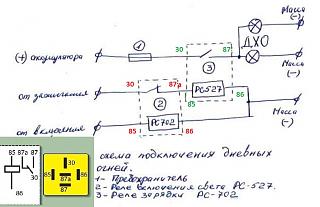 Масса
(-)
ДХО
30 87
(+) аккумулятора 1
3
Масса
(-)
30 87а 85 86
от зажигания РС-527
2
85 86
от включения РС-702
85 30
87
86
30
85 87а 86
87
схема подключения дневных
огней.
1- Предохранитель
2- Реле включения света РС-527.
3- Реле зарядки РС-702